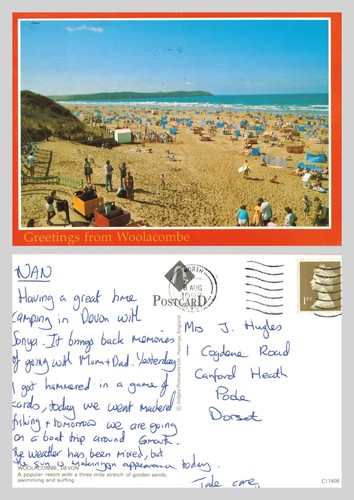 Greetings from Woolacombe
NAN
Having a great time
camping in Devon with
Sonya. It brings back memories
of going with Mum + Dad. Yesterday
I got hammered in a game of
cards, today we went mackerel
fishing + tomorrow we are going
on a boat trip around
The weather has been mixed, but
the sun is making an appearance today.
Take care,
POSTCARD
AUG
1ST
Mrs J. Hughes
1 Cogdene Road
Canford Heath
Poole
Dorset
WOOLACOMBE, DEVON
A popular resort with a three mile stretch of golden sands,
swimming and surfing
C11408